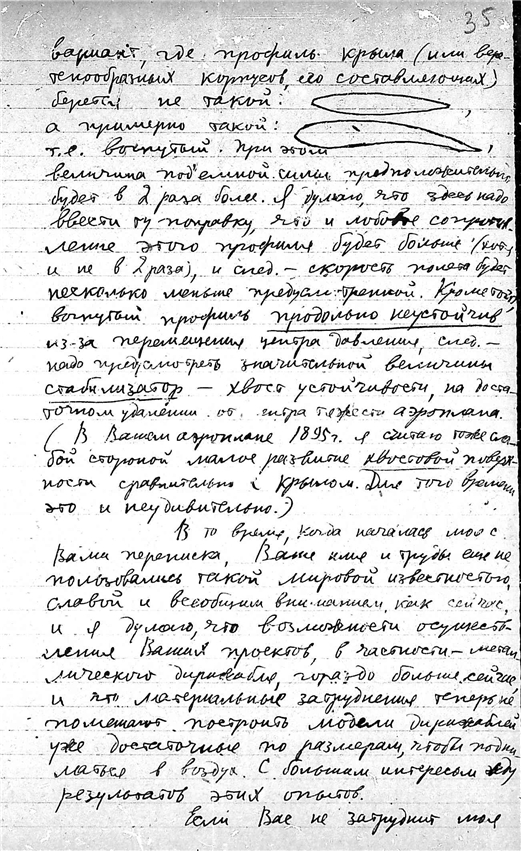 35
вариант, где профиль крыла (или вере-
тенообразных корпусов, его составляющих)
берется не такой: ,
а примерно такой: ,
т.е. вогнутый. При этом
величина под'емной силы предположительно
будет в 2 раза более. Я думаю, что здесь надо
ввести ту поправку, что и лобовое сопротив-
ление этого профиля будет больше (хотя
и не в 2 раза), и след. – скорость полета будет
несколько меньше предусмотренной. Кроме того,
вогнутый профиль продольно неустойчив
из-за перемещения центра давления, след. –
надо предусмотреть значительной величины
стабилизатор – хвост устойчивости, на доста-
точном удалении от центра тяжести аэроплана.
(В Вашем аэроплане 1895 г. я считаю тоже сла-
бой стороной малое развитие хвостовой поверх-
ности сравнительно с крылом. Для того времени
это и неудивительно.)
В то время, когда началась моя с
Вами переписка, Ваше имя и труды еще не
пользовались такой мировой известностью,
славой и всеобщим вниманием, как сейчас,
и я думаю, что возможности осущест-
вления Ваших проектов, в частности – метал-
лического дирижабля, гораздо больше сейчас,
и что материальные затруднения теперь не
помешают построить модели дирижаблей
уже достаточные по размерам, чтобы подни-
маться в воздух. С большим интересом жду
результатов этих опытов.
Если Вас не затруднит моя